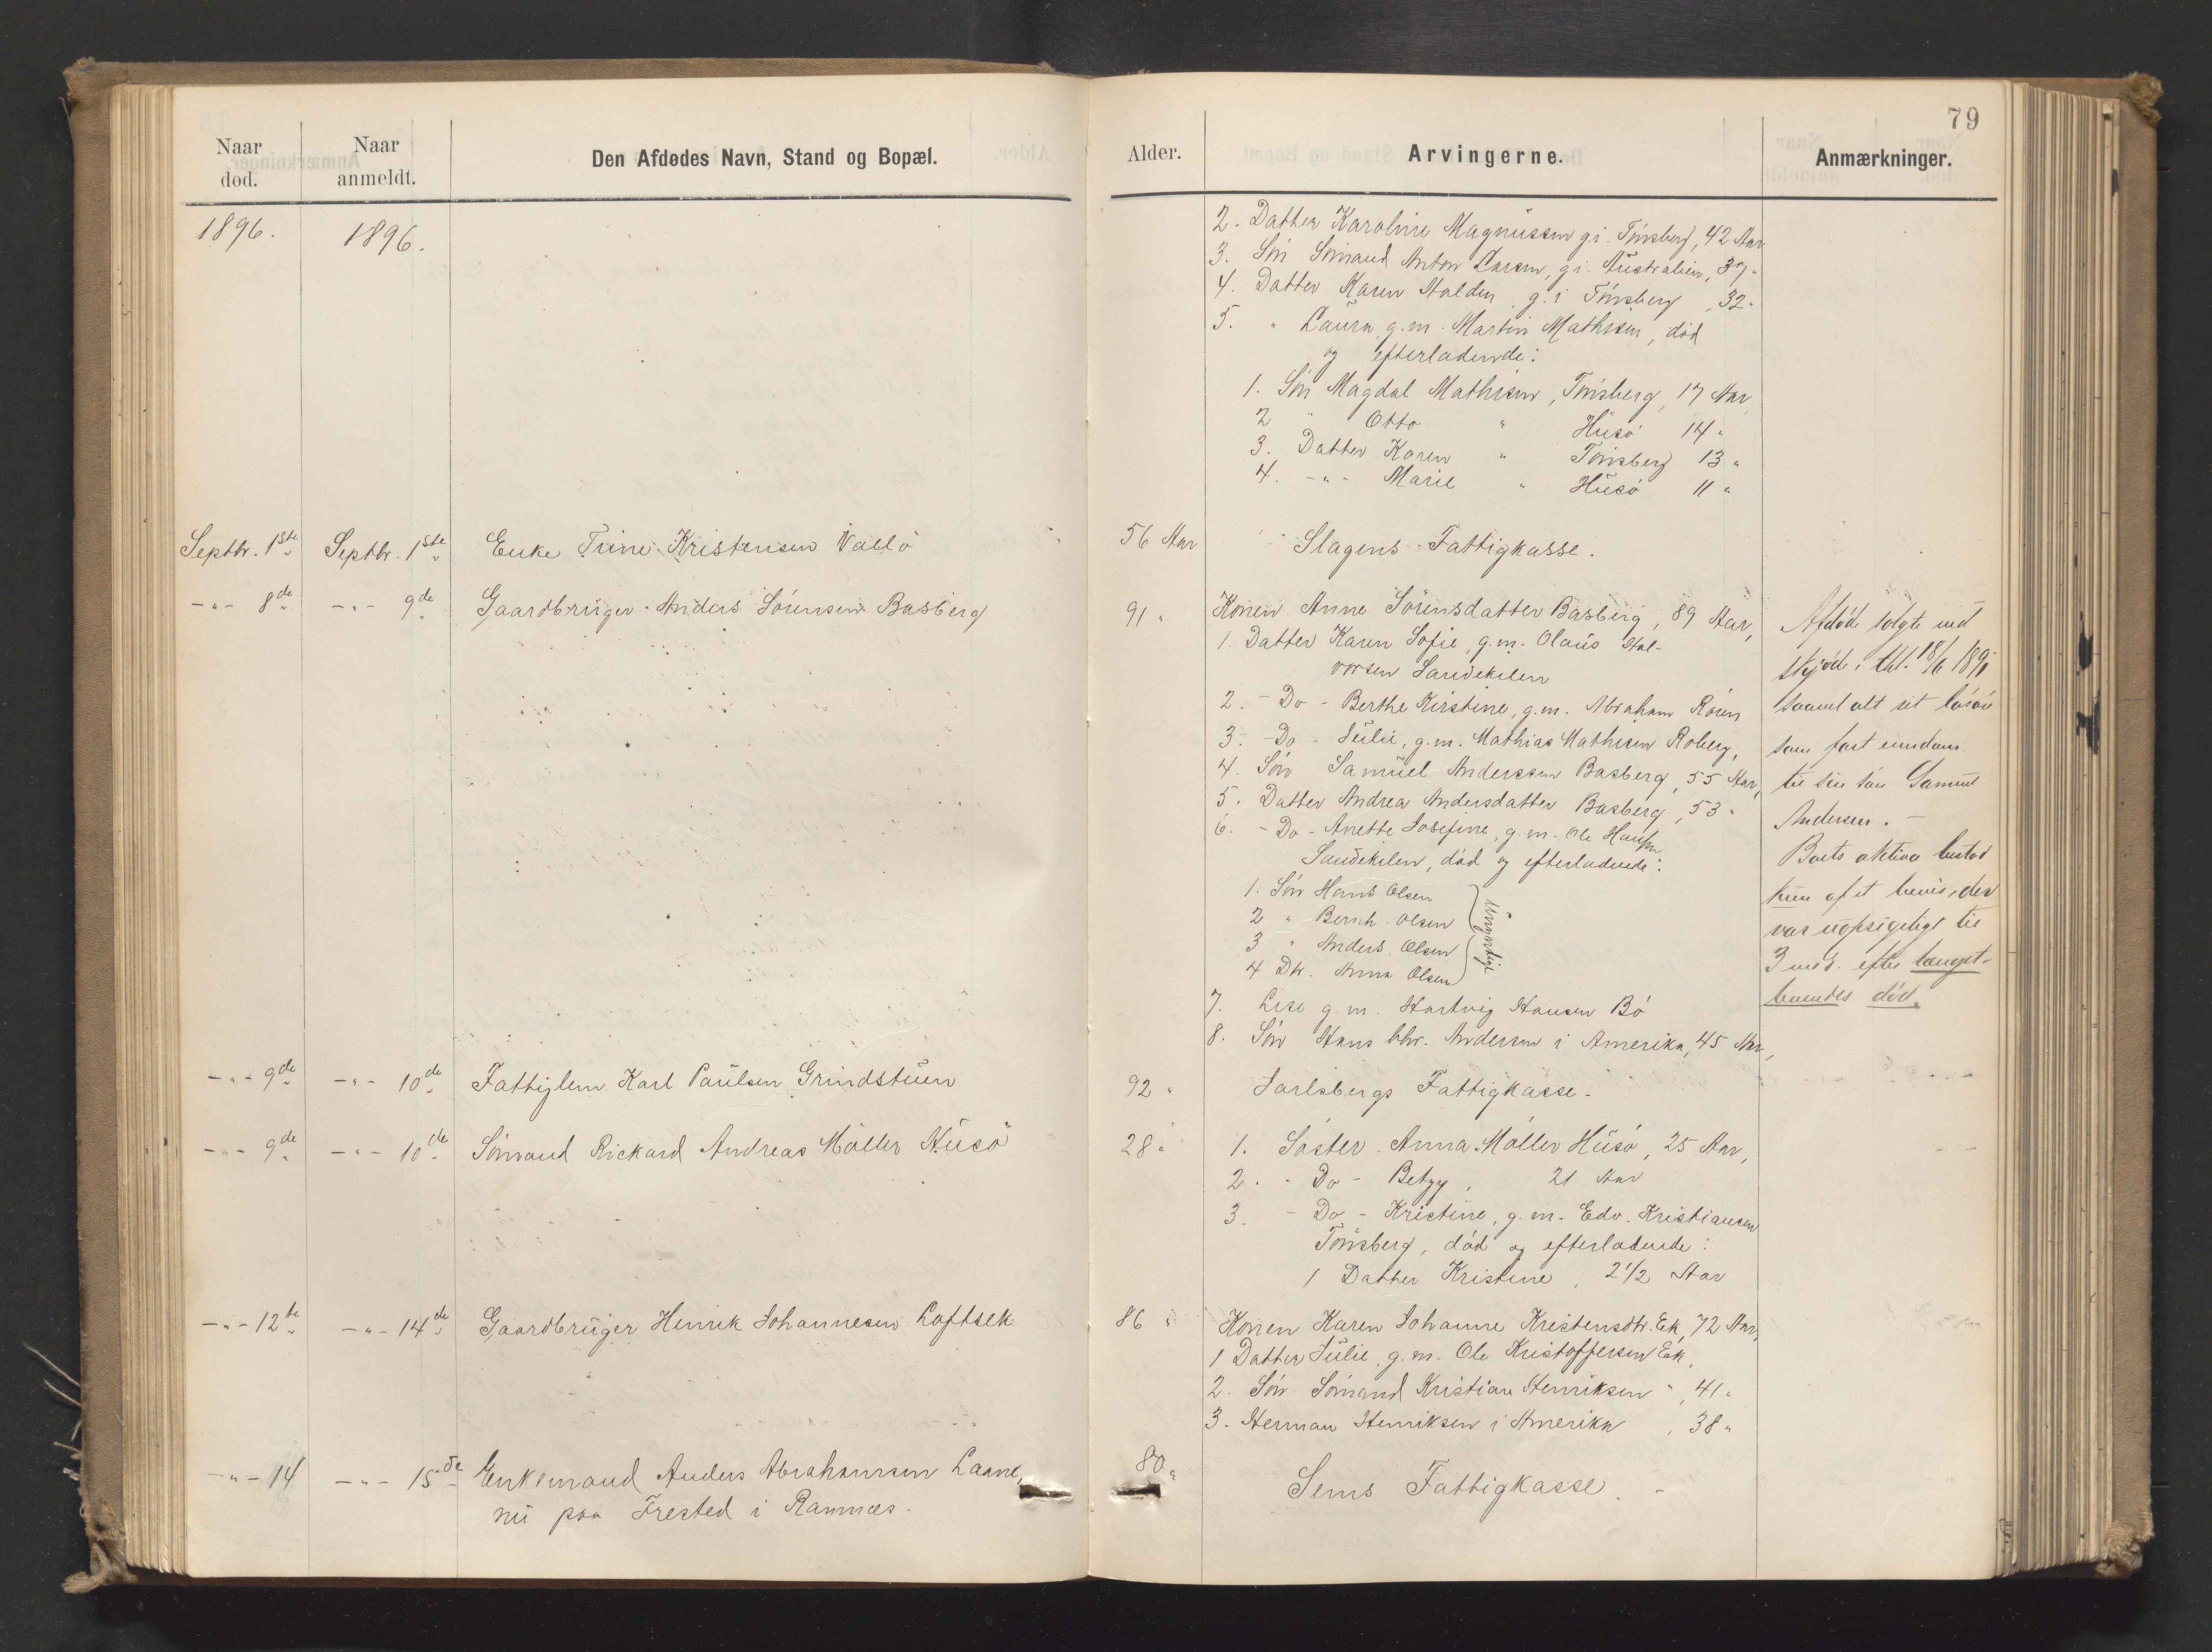 79
Naar død.
Naar anmeldt.
Den Afdødes Navn, Stand og Bopæl.
Alder.
Arvingerne.
Anmærkninger.
1896.
1896.
2. Datter Karoline Magnussen g. i Tønsberg, 42 Aar
3. Søn Sømand Anton Larsen, g. i. Australien, 37 "
4. Datter Karen Halden, g. i Tønsberg, 32 "
5. " Laura g. m. Martin Mathisen, død
og efterladende:
1. Søn Magdal Mathisen, Tønsberg, 17 Aar
2 " Otto " Husø 14 "
3. Datter Karen " Tønsberg 13 "
4. -"- Marie " Husø 11 "
Septbr. 1ste
Septbr. 1ste
Enke Trine Kristensen Vallø
56 Aar
Slagens Fattigkasse.
-"- 8de
-"- 9de
Gaardbruger Anders Sørensen Basberg
91 "
Konen Anne Sørensdatter Basberg, 89 Aar,
1. Datter Karen Sofie, g. m. Olaus Hal-
vorsen Sandekilen
2. - Do - Berthe Kirstine, g. m. Abraham Røren
3. - Do - Julie, g. m. Mathias Mathisen Roberg,
4. Søn Samuel Anderssen Basberg, 55 Aar,
5. Datter Andrea Andersdatter Basberg, 53 "
6. - Do - Anette Josefine, g. m. Ole Hansen
Sandekilen, død og efterladende:
1. Søn Hans Olsen
2 " Bernh. Olsen
3 " Anders Olsen
4 Dtr. Anna Olsen
Umyndige
7. Lise g. m. Hartvig Hansen Bø
8. Søn Hans Chr. Andersen i Amerika, 45 Aar,
Afdøde solgte ved
skjøde, thl. 18/6 1891
saavel alt sit løsøre
som fast eiendom
til sin søn Samuel
Andersen. -
Boets aktiva bestod
kun af et bevis, der
var uopsigeligt til
3 mdr. efter længst-
levendes død.
-"- 9de
-"- 10de
Fattiglem Karl Paulsen Grindstuen
92 "
Jarlsbergs Fattigkasse.
-"- 9de
-"- 10de
Sømand Rickard Andreas Møller Husø
28 "
1. Søster Anna Møller Husø, 25 Aar,
2. - Do - Betzy, 21 Aar
3. - Do - Kristine, g. m. Edv. Kristiansen
Tønsberg, død og efterladende:
1 Datter Kristine, 2 1/2 Aar
-"- 12te
-"- 14de
Gaardbruger Henrik Johannesen Loftsek
86 "
Konen Karen Johanne Kristensdtr. Ek, 72 Aar,
1 Datter Julie, g. m. Ole Kristoffersen Ek,
2. Søn Sømand Kristian Henriksen ", 41 "
3. Herman Henriksen i Amerika, 38 "
-"- 14
-"- 15de
Enkemand Anders Abrahamsen Laane,
nu paa Frested i Ramnæs.
80 "
Sems Fattigkasse. -